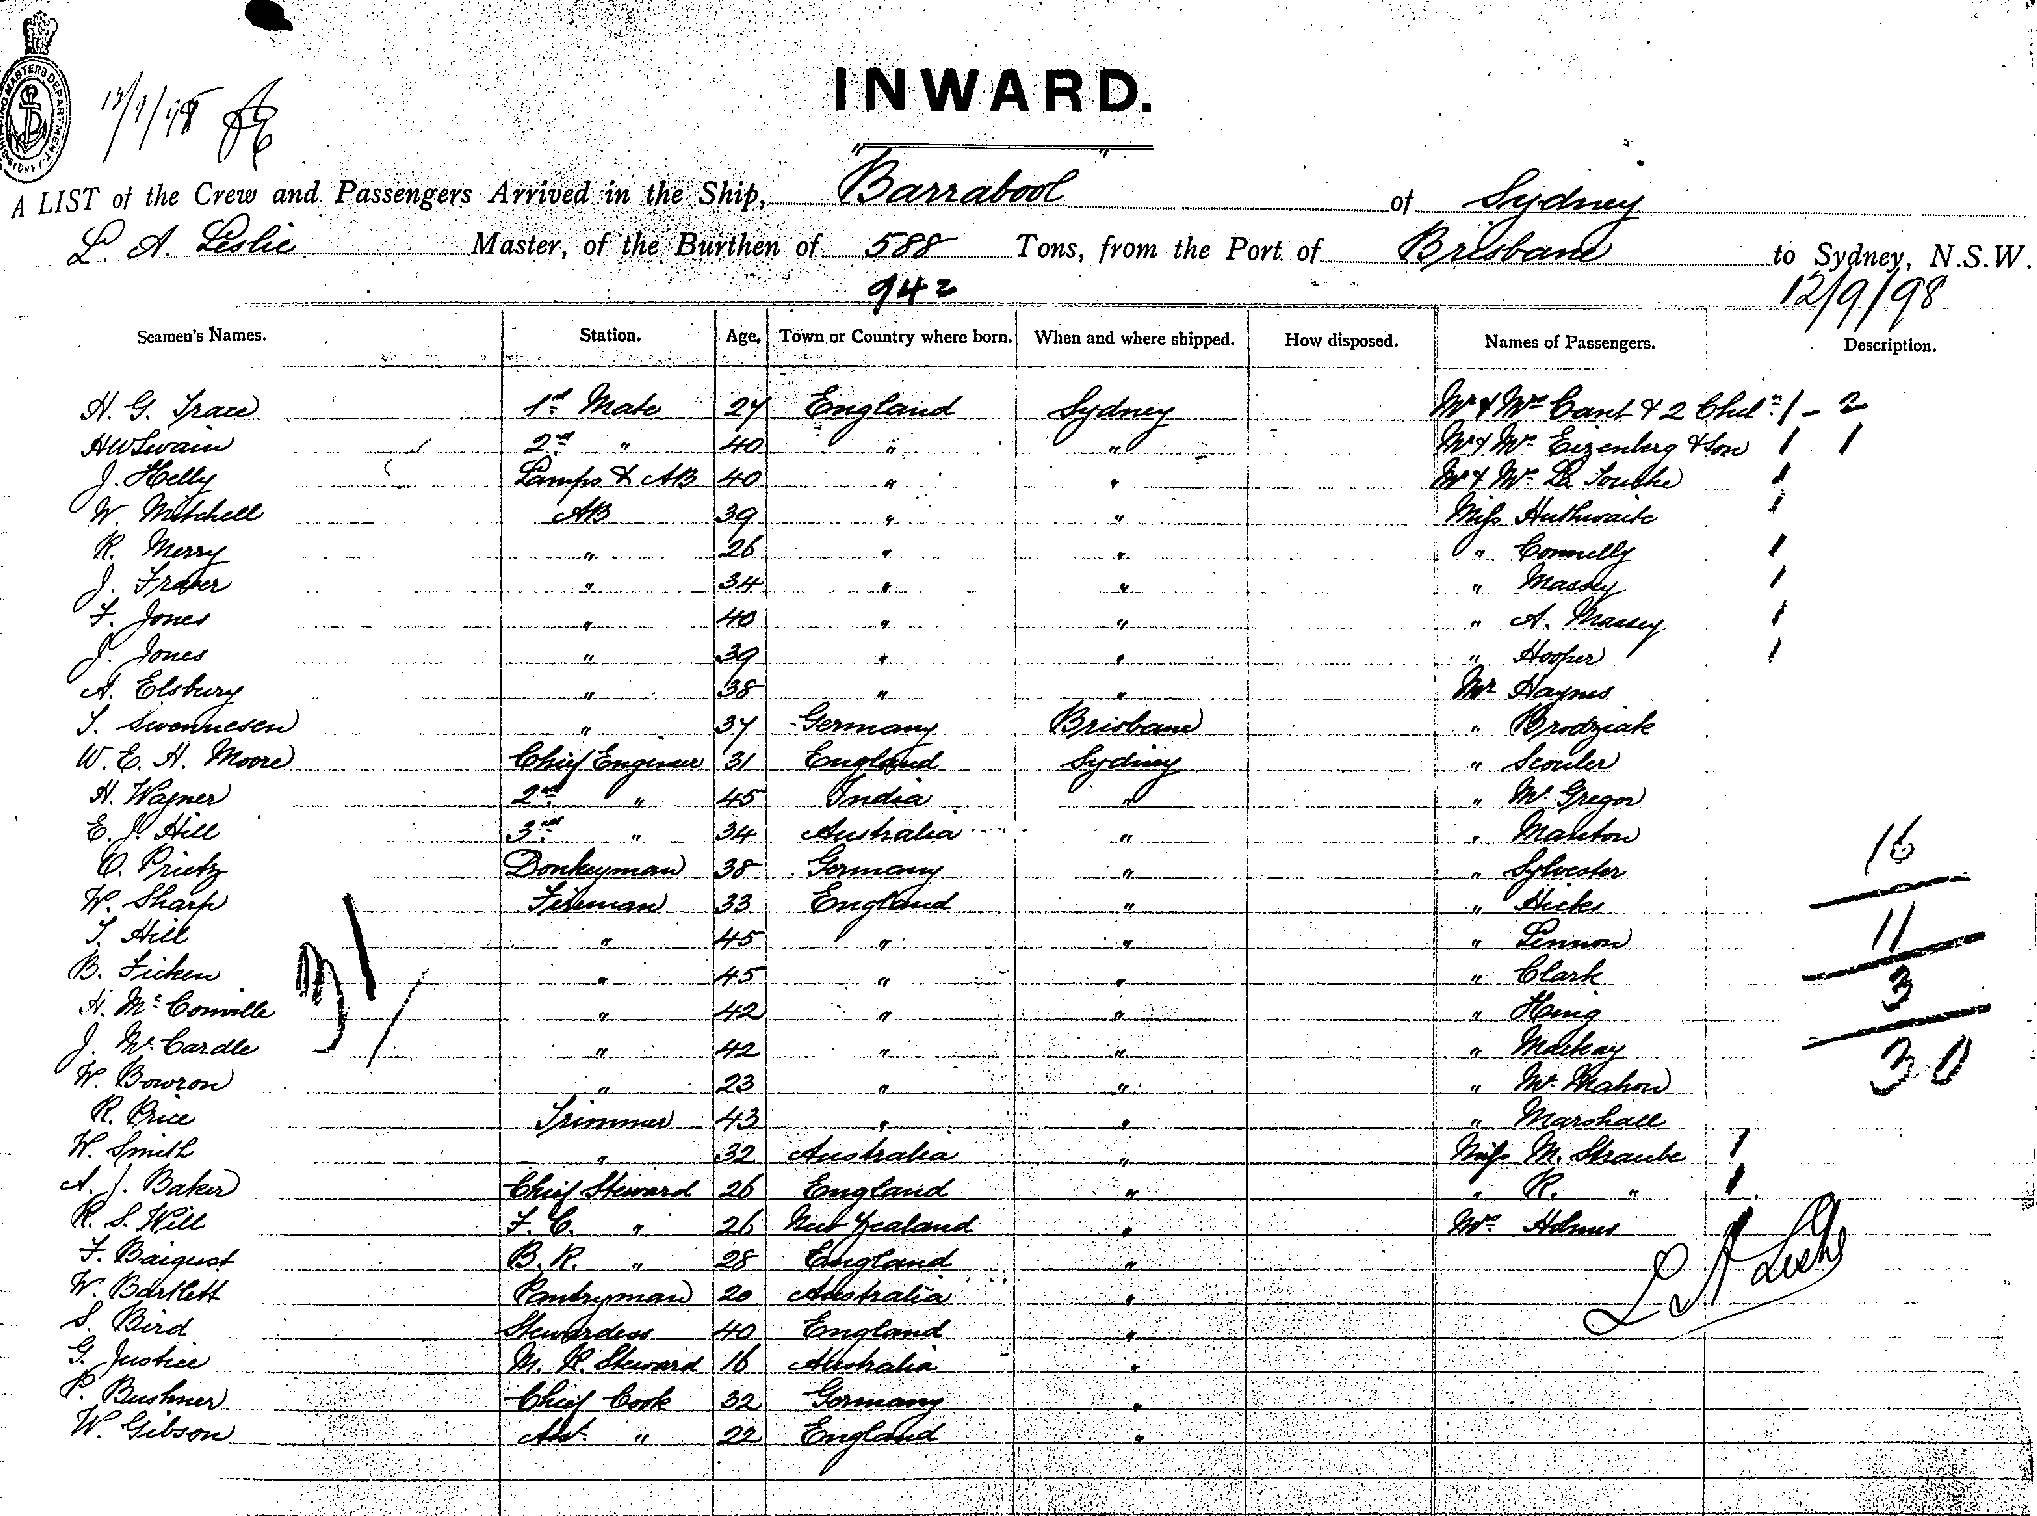 INWARD.
12/9/98
A LIST of the Crew and Passengers Arrived in the Ship, Barrabool of Sydney
L. A. Leslie Master, of the Burthen of 588 Tons, from the Port of Brisbane to Sydney, N.S.W.
942 12/9/98
Seamen's Names. Station. Age. Town or Country where born. When and where shipped. How disposed. Names of Passengers. Description.
H. G. Trace 1st Mate 27 England Sydney Mr & Mrs Cant & 2 Chdn 1 - 2
H W Swain 2nd " 40 " " Mr & Mrs Eizenberg & Son 1 1
J. Helly Lamps & AB 40 " " Mr & Mrs La Touche 1
W. Mitchell AB 39 " " Miss Huthwaite 1
R. Merry " 26 " " " Connelly 1
J. Fraser " 34 " " " Massey 1
F. Jones " 40 " " " A. Massey 1
J. Jones " 39 " " " Hooper 1
A. Elsbury " 38 " " Mr Haynes
T. Swennesen " 37 Germany Brisbane " Brodziak
W. E. H. Moore Chief Engineer 31 England Sydney " Scouler
H. Wagner 2nd " 45 India " " McGregor
E. J. Hill 3rd " 34 Australia " " Manton
O. Prietz Donkeyman 38 Germany " " Sylvester
W. Sharp Fireman 33 England " " Hicks
T. Hill " 45 " " " Lennon
B. Ficken " 45 " " " Clark
H. McConville " 42 " " " Hing
J. McCardle " 42 " " " Mackay
W. Bowron " 23 " " " McMahon
R. Price Trimmer 43 " " " Marshall
W. Smith " 32 Australia " Miss M. Straube 1
A. J. Baker Chief Steward 26 England " " R. " 1
R. S. Hill F. C. " 26 New Zealand " Mrs Holmes 1
F. Baigust B. R. " 28 England "
W. Bartlett Pantryman 20 Australia "
S. Bird Stewardess 40 England "
G. Justice M. R. Steward 16 Australia "
P. Bushner Chief Cook 32 Germany "
W. Gibson Ast. " 22 England "
31
16
11
3
30
L A Leslie